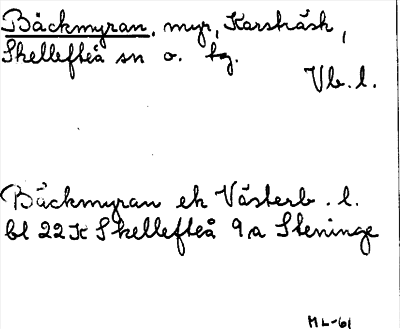 Bäckmyran, myr, Karsträsk,
Skellefteå sn o. tg.
Vb. l.
Bäckmyran ek Västerb. l.
bl 22 K Skellefteå 9 a Steninge
ML-61